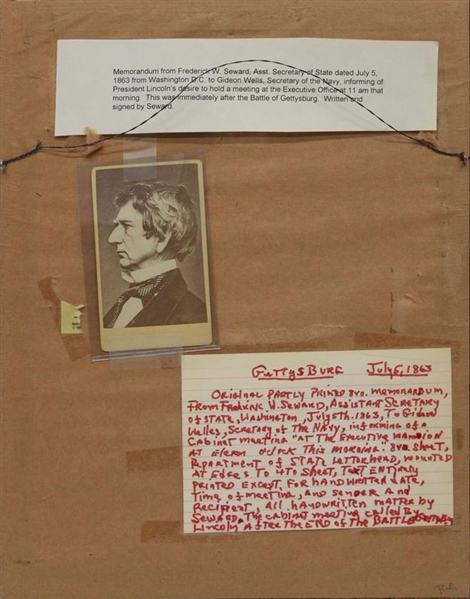 Memorandum from Frederick W. Seward, Asst. Secretary of State dated July 5,
1863 from Washington D.C. to Gideon Wells, Secretary of the Navy, informing of
President Lincoln's desire to hold a meeting at the Executive Office at 11 am that
morning. This was immediately after the Battle of Gettysburg. Written and
signed by Seward.
GettysBurg July 5, 1863
Original Partly Printed 8vo. memorandum,
from Fredrick W. Seward, Assistant Secretary
of State, Washington, July 5th. 1863, To Gideon
Welles, Secretary of the Navy, informing of a
Cabinet meeting "at The Executive mansion
at Eleven o'clock This morning. 8vo. sheet,
Department of State Letterhead, mounted
at Edges To 4to sheet, Text Entirely
printed Except for handwritten date,
Time of meeting, and sender and
Recipient, all handwritten matter by
Seward. The cabinet meeting called By
Lincoln after the End of the Battle